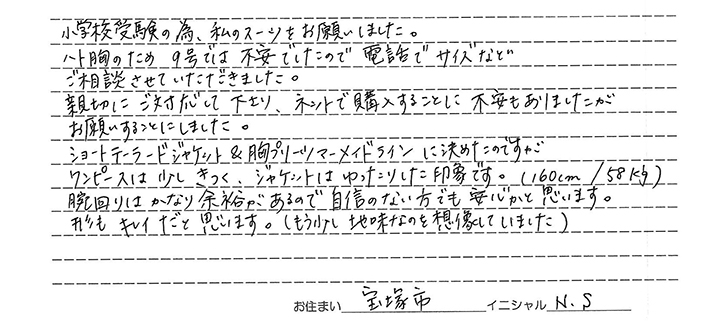 小学校受験の為、私のスーツをお願いしました。
ハト胸のため9号では不安でしたので電話でサイズなど
ご相談させていただきました。
親切にご対応して下さり、ネットで購入することに不安もありましたが
お願いすることにしました。
ショートテーラードジャケット&胸プリーツマーメイドラインに決めたのですが
ワンピースは少しきつく、ジャケットはゆったりした印象です。(160cm/58kg)
腕回りはかなり余裕があるので自信のない方でも安心かと思います。
形もキレイだと思います。(もう少し地味なのを想像していました)
お住まい 宝塚市 イニシャル N.S